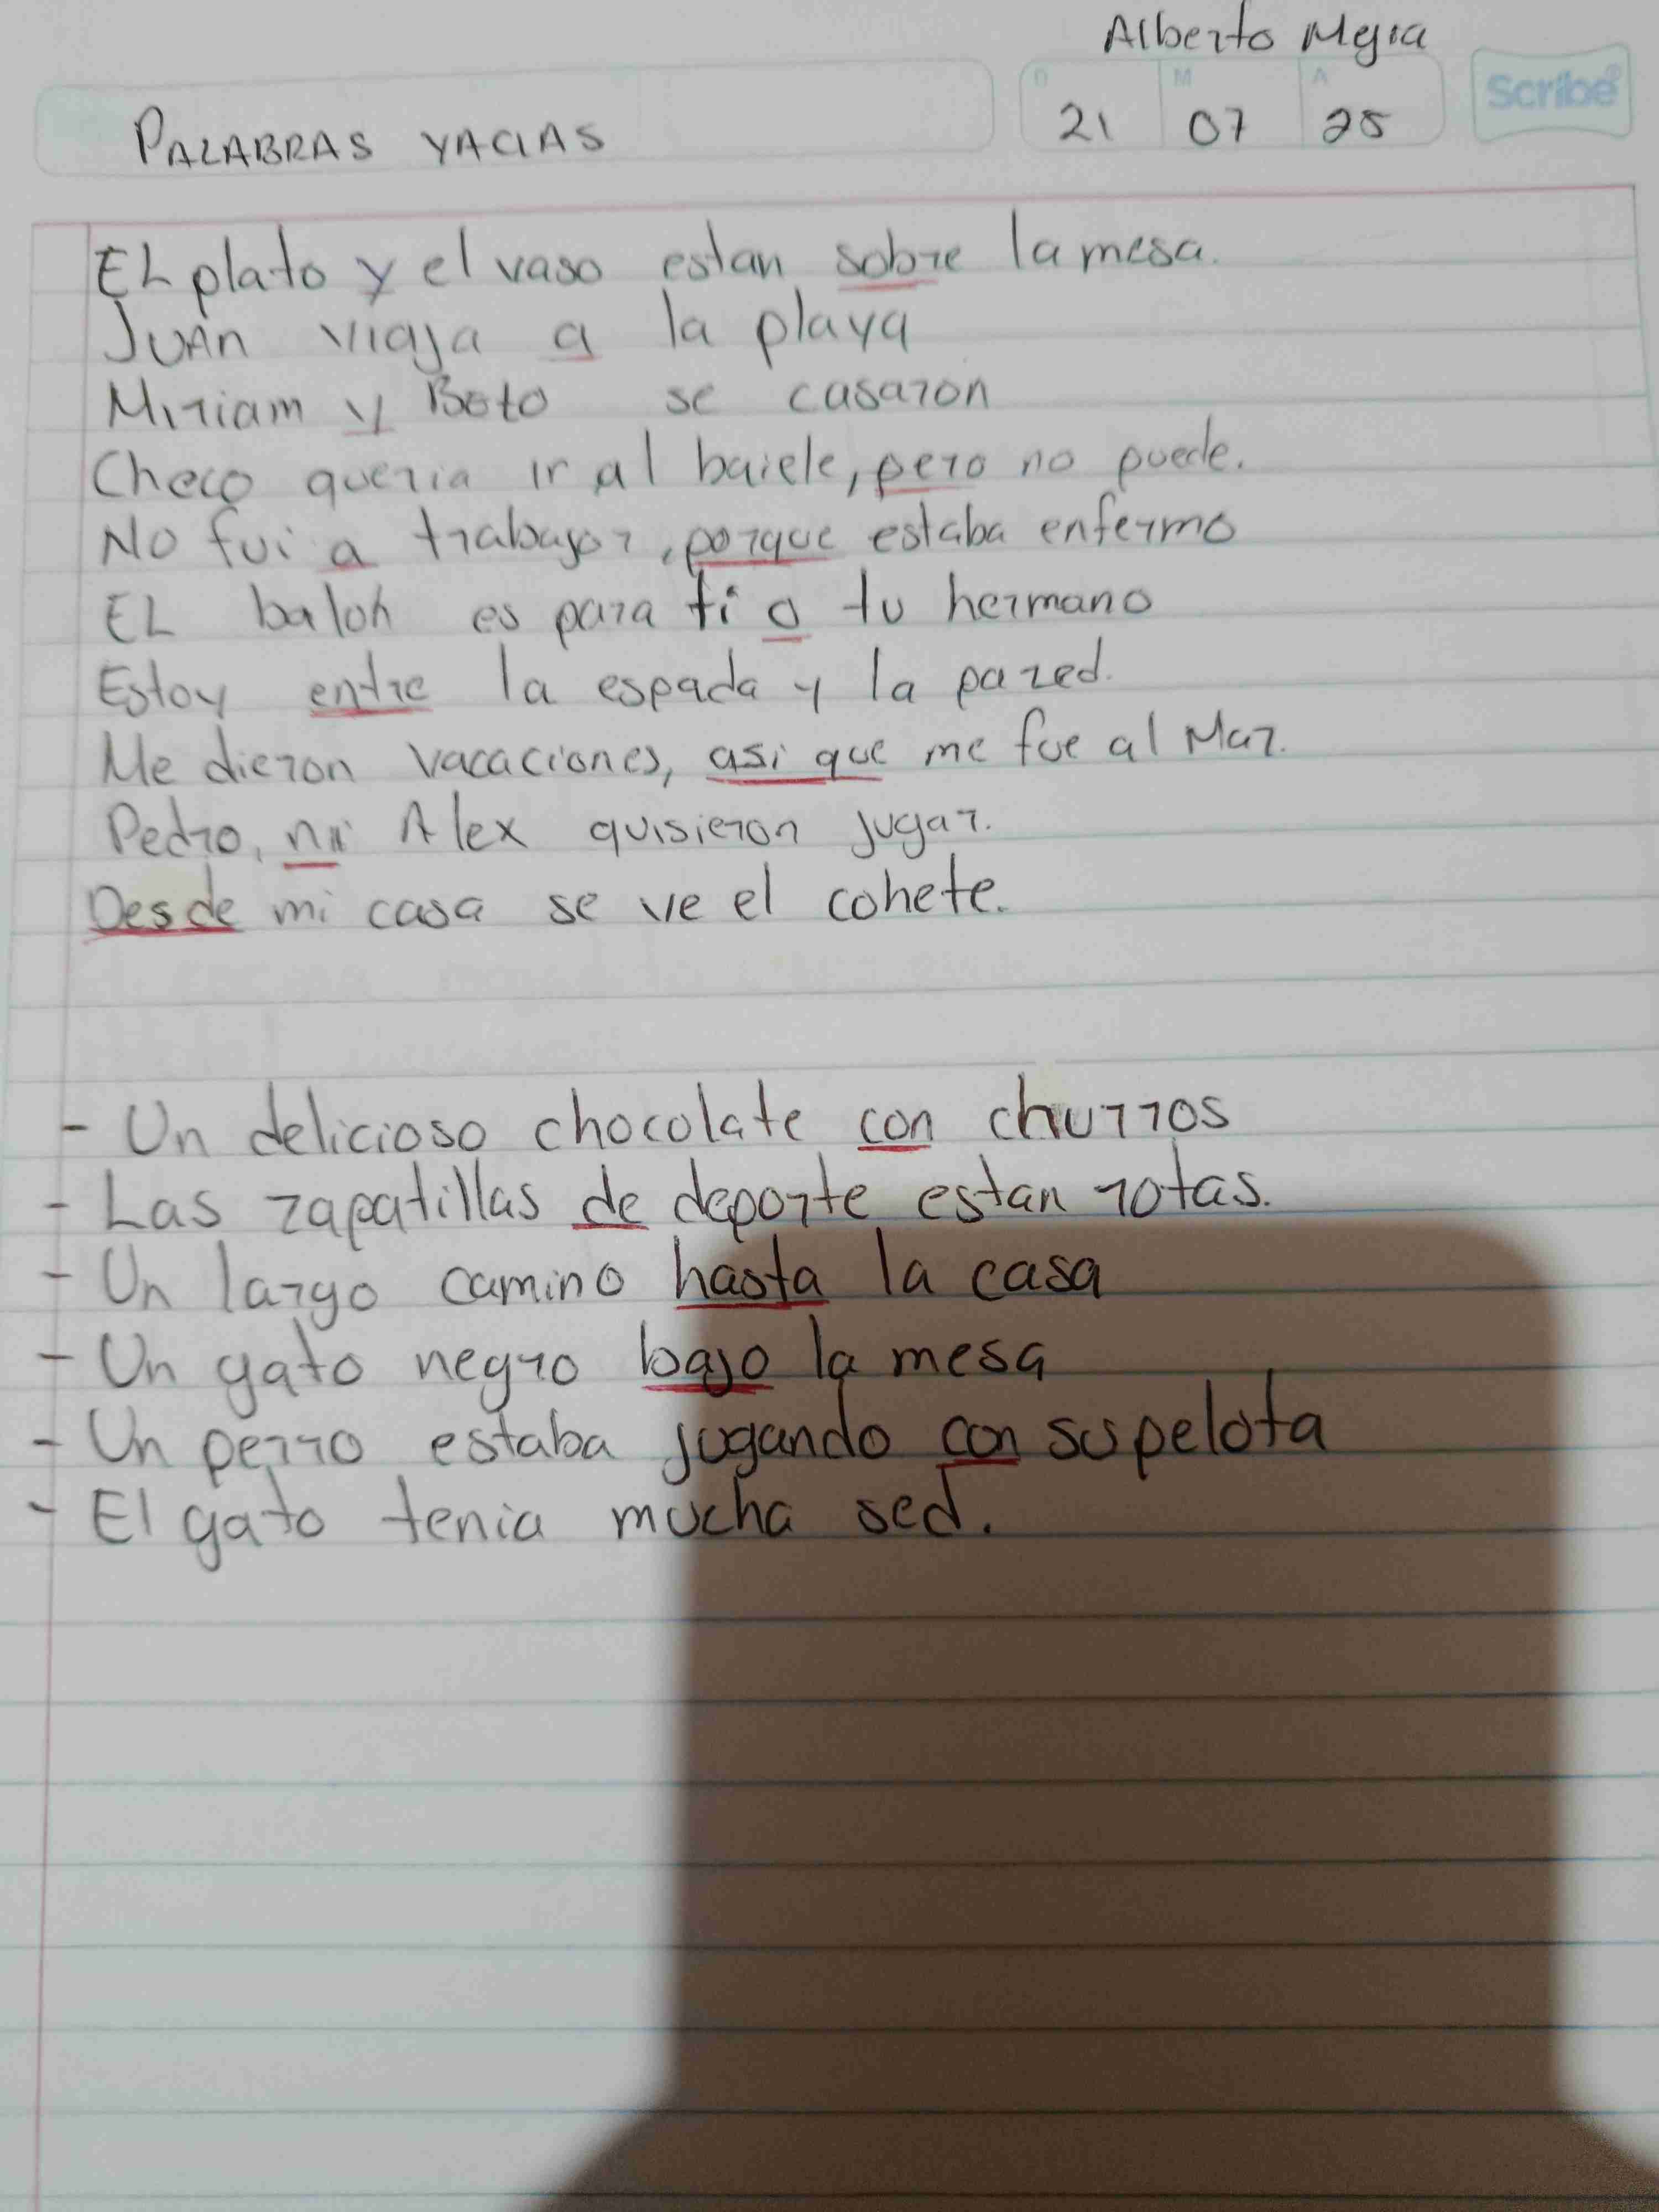 Alberto Mejia
D M A
21 07 25
Scribe
PALABRAS VACIAS
EL plato y el vaso estan sobre la mesa.
Juan viaja a la playa
Miriam y Beto se casaron
Checo queria ir al baiele, pero no puede.
No fui a trabajar, porque estaba enfermo
EL balon es para ti o tu hermano
Estoy entre la espada y la pared.
Me dieron vacaciones, asi que me fue al Mar.
Pedro, ni Alex quisieron jugar.
Desde mi casa se ve el cohete.
- Un delicioso chocolate con churros
- Las zapatillas de deporte estan rotas.
- Un largo camino hasta la casa
- Un gato negro bajo la mesa
- Un perro estaba jugando con su pelota
- El gato tenia mucha sed.